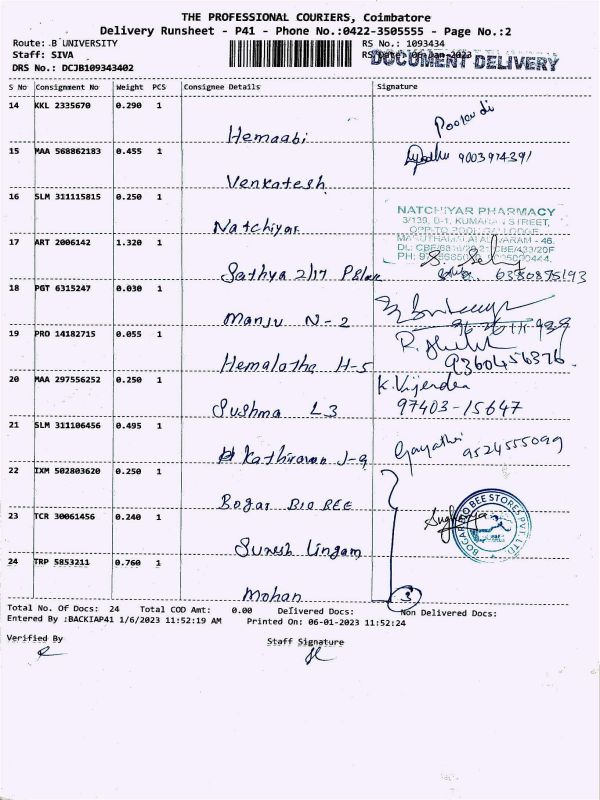 THE PROFESSIONAL COURIERS, Coimbatore
Delivery Runsheet - P41 - Phone No.:0422-3505555 - Page No.:2
Route: .B UNIVERSITY
RS No.: 1093434
Staff: SIVA
RS Date: 06-Jan-2023
DOCUMENT DELIVERY
DRS No.: DCJB109343402
S No Consignment No Weight PCS Consignee Details Signature
14 KKL 2335670 0.290 1
Hemaabi
15 MAA 568862183 0.455 1
9003974391
Venkatesh
16 SLM 311115815 0.250 1
Natchiyar
NATCHIYAR PHARMACY
17 ART 2006142 1.320 1
Sathya 2/17
6380875193
18 PGT 6315247 0.030 1
Manju N-2
19 PRO 14182715 0.055 1
Hemalatha H-5
9360456376
20 MAA 297556252 0.250 1
K. Vijendra
Sushma L3
97403-15647
21 SLM 311106456 0.495 1
Kathiravan J-9
Gayathri
9524555099
22 IXM 502803620 0.250 1
Bogar BIO BEE
BOGAR BIO BEE STORES PVT. LTD
23 TCR 30061456 0.240 1
Suresh Lingam
24 TRP 5853211 0.760 1
Mohan
3
Total No. Of Docs: 24 Total COD Amt: 0.00 Delivered Docs: Non Delivered Docs:
Entered By :BACKIAP41 1/6/2023 11:52:19 AM Printed On: 06-01-2023 11:52:24
Verified By Staff Signature